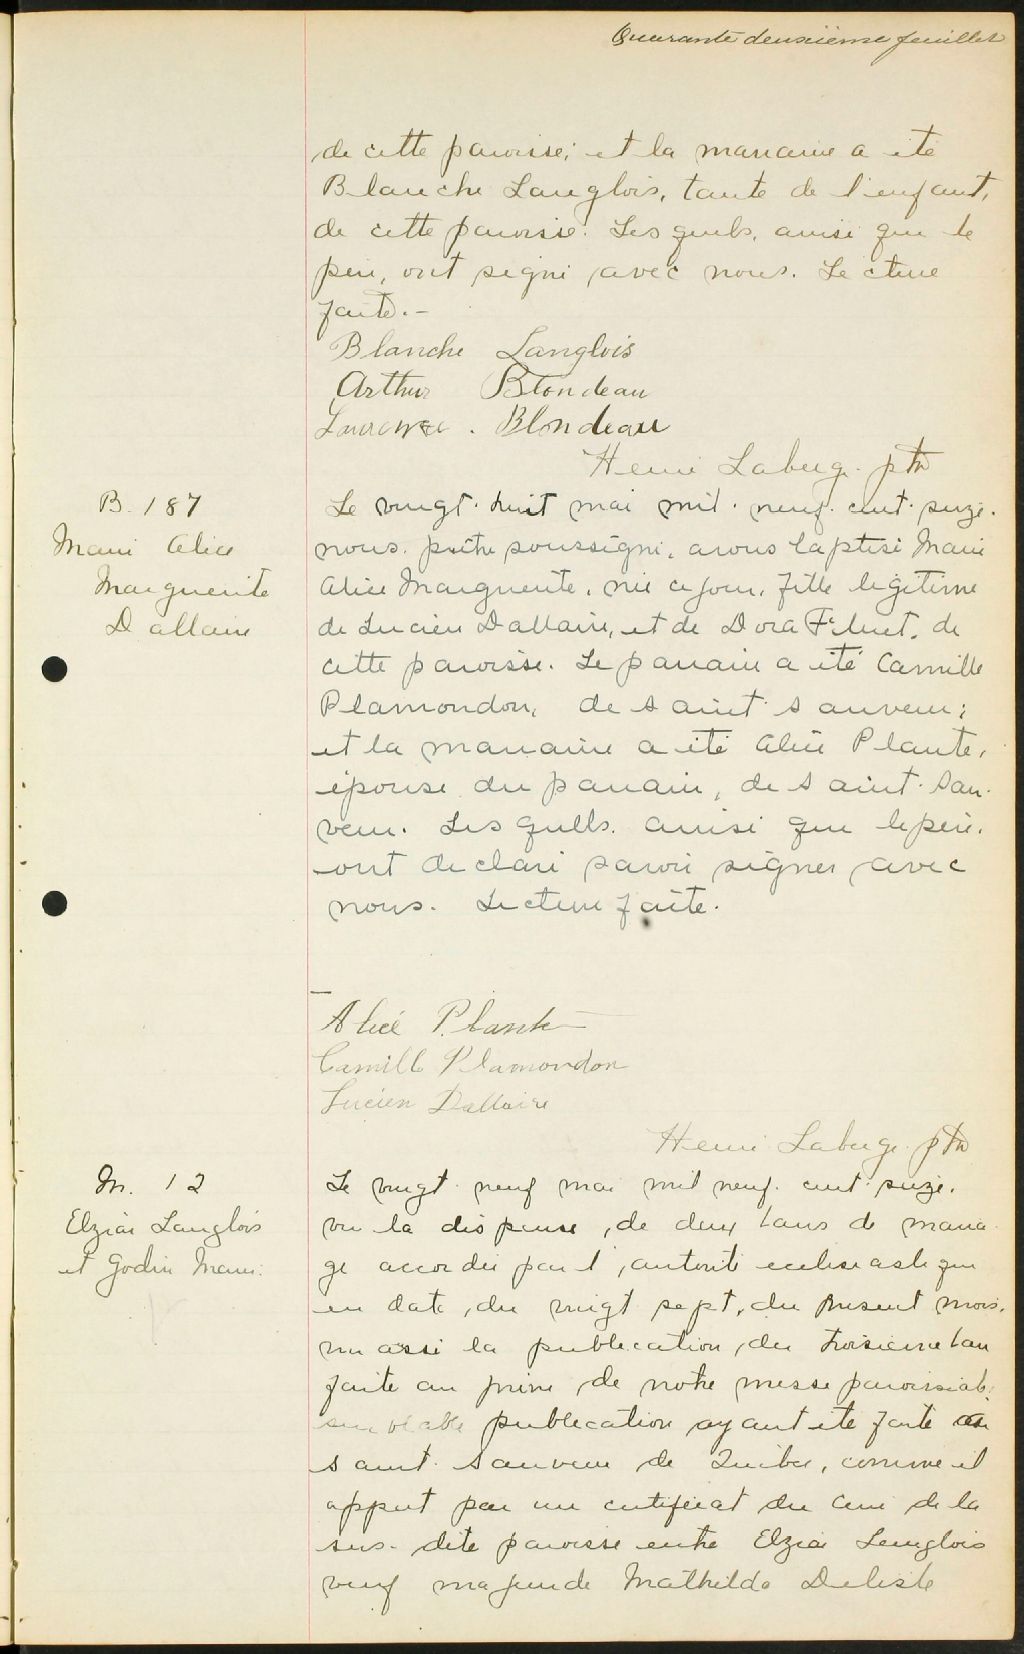 Quarante deuxième feuillet
de cette paroisse; et la marraine a été
Blanche Langlois, tante de l'enfant,
de cette paroisse. Lesquels, ainsi que le
père, ont signé avec nous. Lecture
faite.-
Blanche Langlois
Arthur Blondeau
Laurence. Blondeau
Henri Laberge ptre
B. 187
Marie Alice
Marguerite
Dallaire
Le vingt-huit mai mil-neuf-cent-seize.
nous prêtre soussigné, avons baptisé Marie
Alice Marguerite, née ce jour, fille légitime
de Lucien Dallaire, et de Dora Filuet, de
cette paroisse. Le parrain a été Camille
Plamondon, de saint-sauveur;
et la marraine a été Alice Plante,
épouse du parrain, de saint-Sau-
veur. Lesquels. ainsi que le père.
ont déclaré savoir signer avec
nous. Lecture faite.
Alice Plante
Camille Plamondon
Lucien Dallaire
Henri Laberge ptre
M. 12
Elzéar Langlois
et Godin Marie.
Le vingt-neuf mai mil neuf-cent-seize.
vu la dispense, de deux bans de maria-
ge accordée par l'autorité ecclésiastique
en date, du vingt sept, du présent mois.
vu assi la publication, du troisième ban
faite au prône de notre messe paroissiale;
semblable publication ayant été faite au
saint-sauveur de Québec, comme il
appert par un certificat du curé de la
sus-dite paroisse entre Elzéar Langlois
veuf majeur de Mathilda Delisle